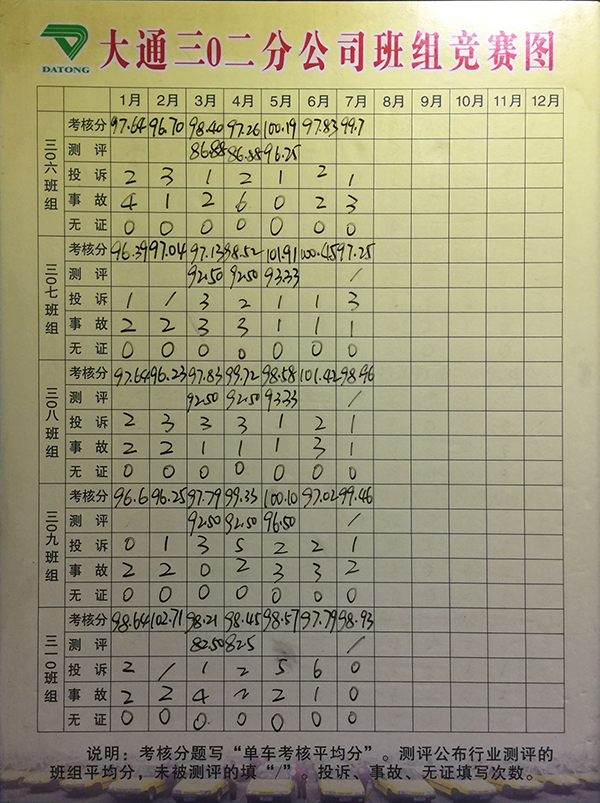 DATONG
大通三0二分公司班组竞赛图
1月 2月 3月 4月 5月 6月 7月 8月 9月 10月 11月 12月
三0六班组
考核分 97.64 96.70 98.40 97.26 100.19 97.83 99.7
测评 86.88 86.88 96.25
投诉 2 3 1 2 1 2 1
事故 4 1 2 6 0 2 3
无证 0 0 0 0 0 0 0
三0七班组
考核分 96.39 97.04 97.13 98.52 101.91 100.45 97.25
测评 92.50 92.50 93.33 /
投诉 1 / 3 2 1 1 3
事故 2 2 3 3 1 1 1
无证 0 0 0 0 0 0 0
三0八班组
考核分 97.64 96.23 97.83 99.72 98.58 101.42 98.96
测评 92.50 92.50 93.33 /
投诉 2 3 3 3 1 2 1
事故 2 2 1 1 1 3 1
无证 0 0 0 0 0 0 0
三0九班组
考核分 96.6 96.25 97.79 99.33 100.10 97.02 99.46
测评 92.50 92.50 96.50 /
投诉 0 1 3 5 2 2 1
事故 2 2 0 2 3 3 2
无证 0 0 0 0 0 0 0
三一0班组
考核分 98.64 102.71 98.21 98.45 98.57 97.79 98.93
测评 82.50 82.5 /
投诉 2 / 1 2 5 6 0
事故 2 2 4 2 2 1 0
无证 0 0 0 0 0 0 0
说明：考核分题写“单车考核平均分”。测评公布行业测评的
班组平均分，未被测评的填“/”。投诉、事故、无证填写次数。